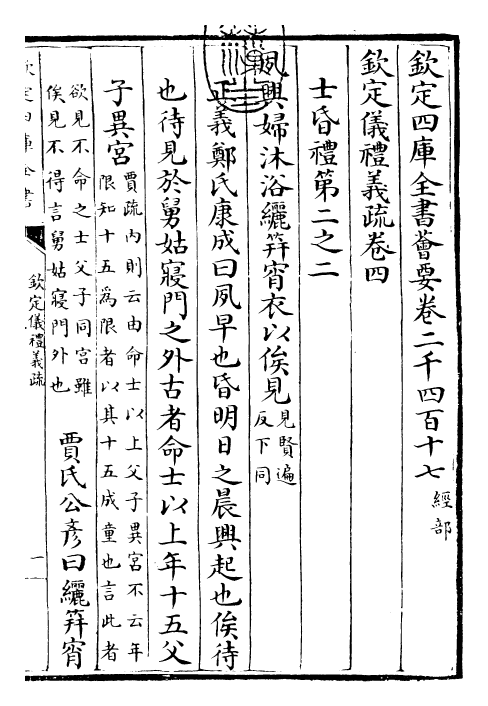 欽定四庫全書薈要卷二千四百十七 經部
欽定儀禮義疏卷四
士昏禮第二之二
夙興婦沐浴纚笄宵衣以俟見見賢遍
反下同
正義鄭氏康成曰夙早也昏明日之晨興起也俟待
也待見於舅姑寢門之外古者命士以上年十五父
子異宮賈疏内則云由命士以上父子異宮不云年
限知十五爲限者以其十五成童也言此者
欲見不命之士父子同宮雖
俟見不得言舅姑寢門外也
賈氏公彦曰纚笄宵
欽定四庫全書
欽定儀禮義疏
一